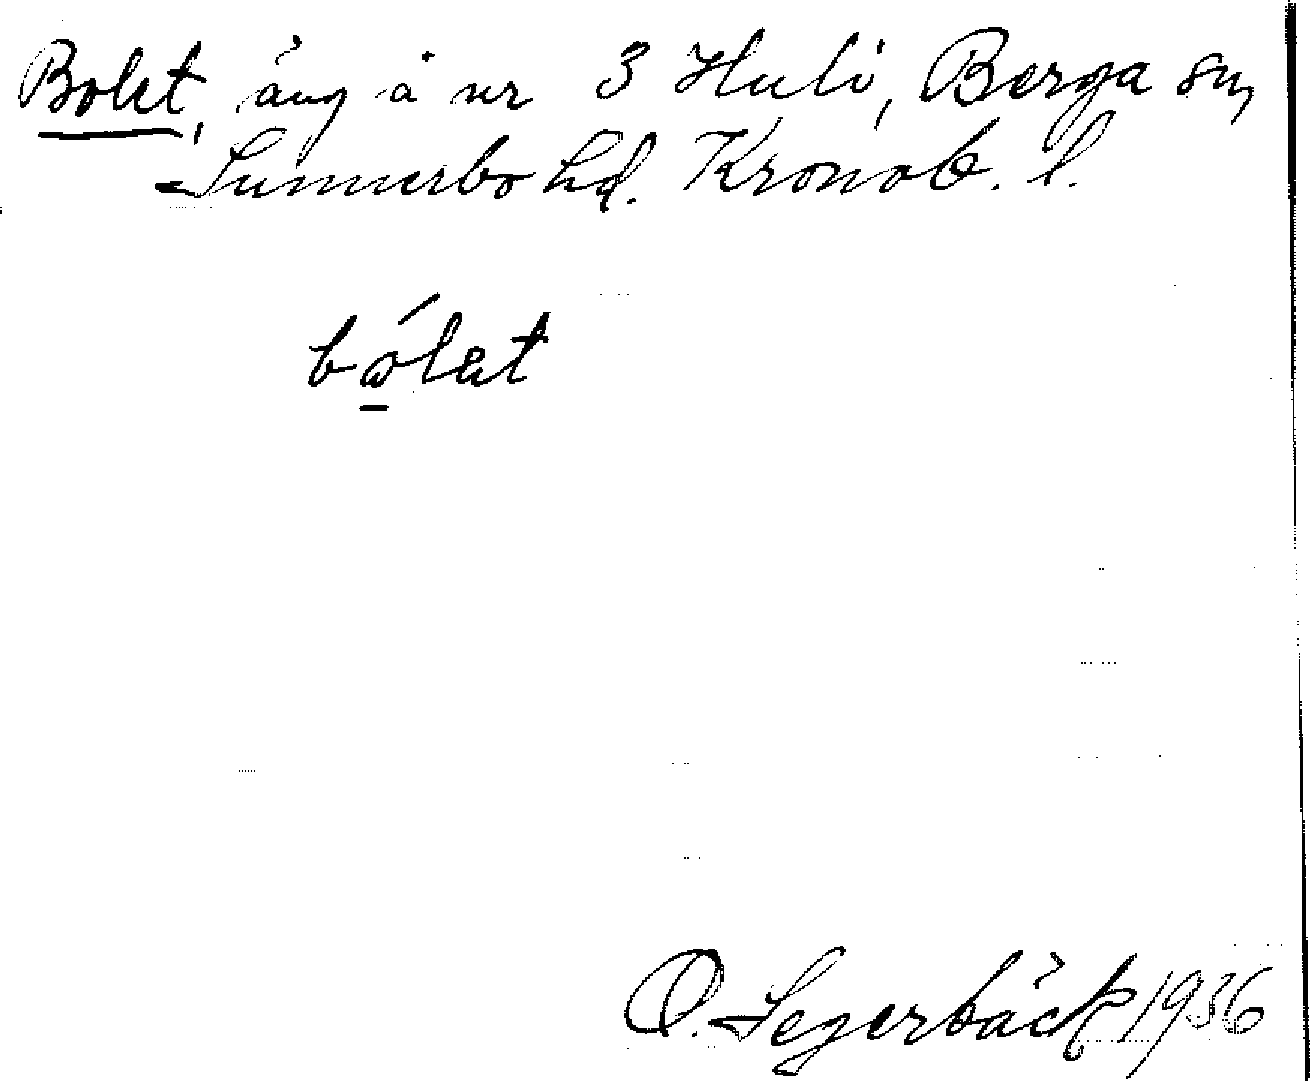 Bolet, äng å nr 3 Hulö, Berga sn,
Sunnerbo hd. Kronob. l.
bώ̲lət
O. Segerbäck 1936